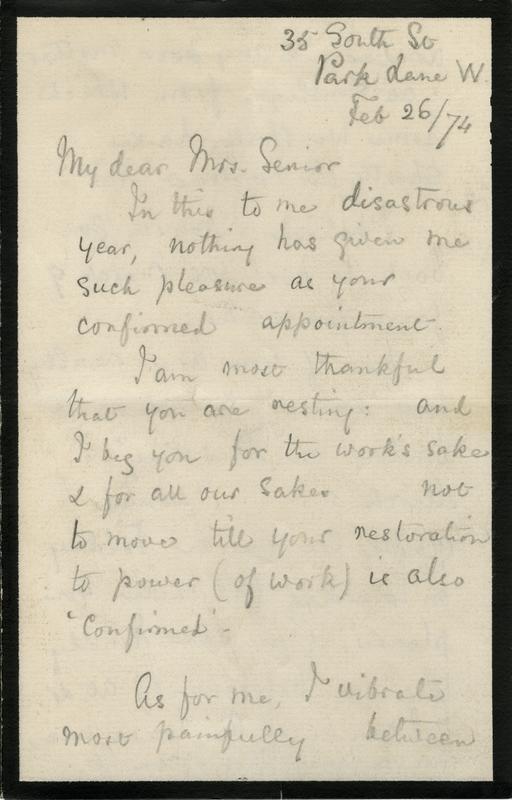 35 South St
Park Lane W.
Feb 26/74
My dear Mrs. Senior
In this to me disastrous
year, nothing has given me
such pleasure as your
confirmed appointment.
I am most thankful
that you are resting: and
I beg you for the work's sake
& for all our sakes not
to move till your restoration
to power (of work) is also
'confirmed'.
As for me, I vibrate
most painfully between